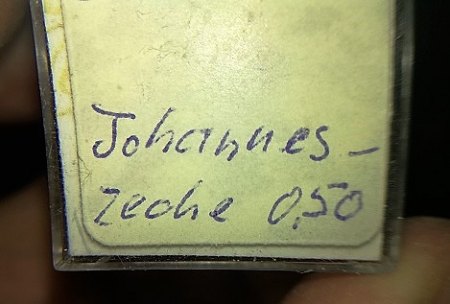 Johannes-
zeche 0,50